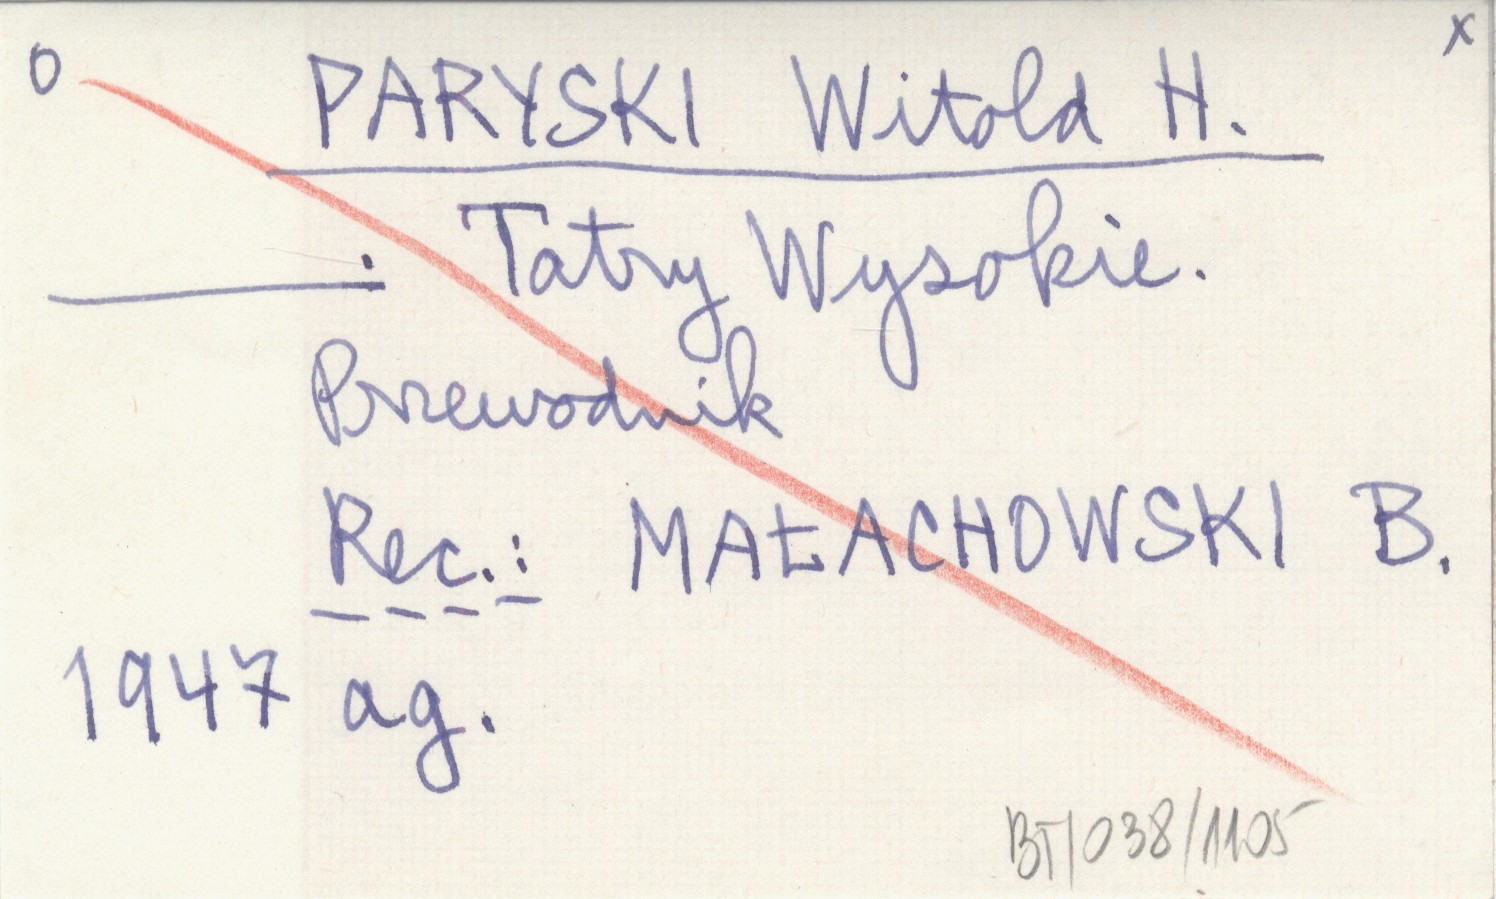 0 x
PARYSKI Witold H.
. Tatry Wysokie.
Przewodnik
Rec.: MAŁACHOWSKI B.
1947 ag.
BT/038/1105